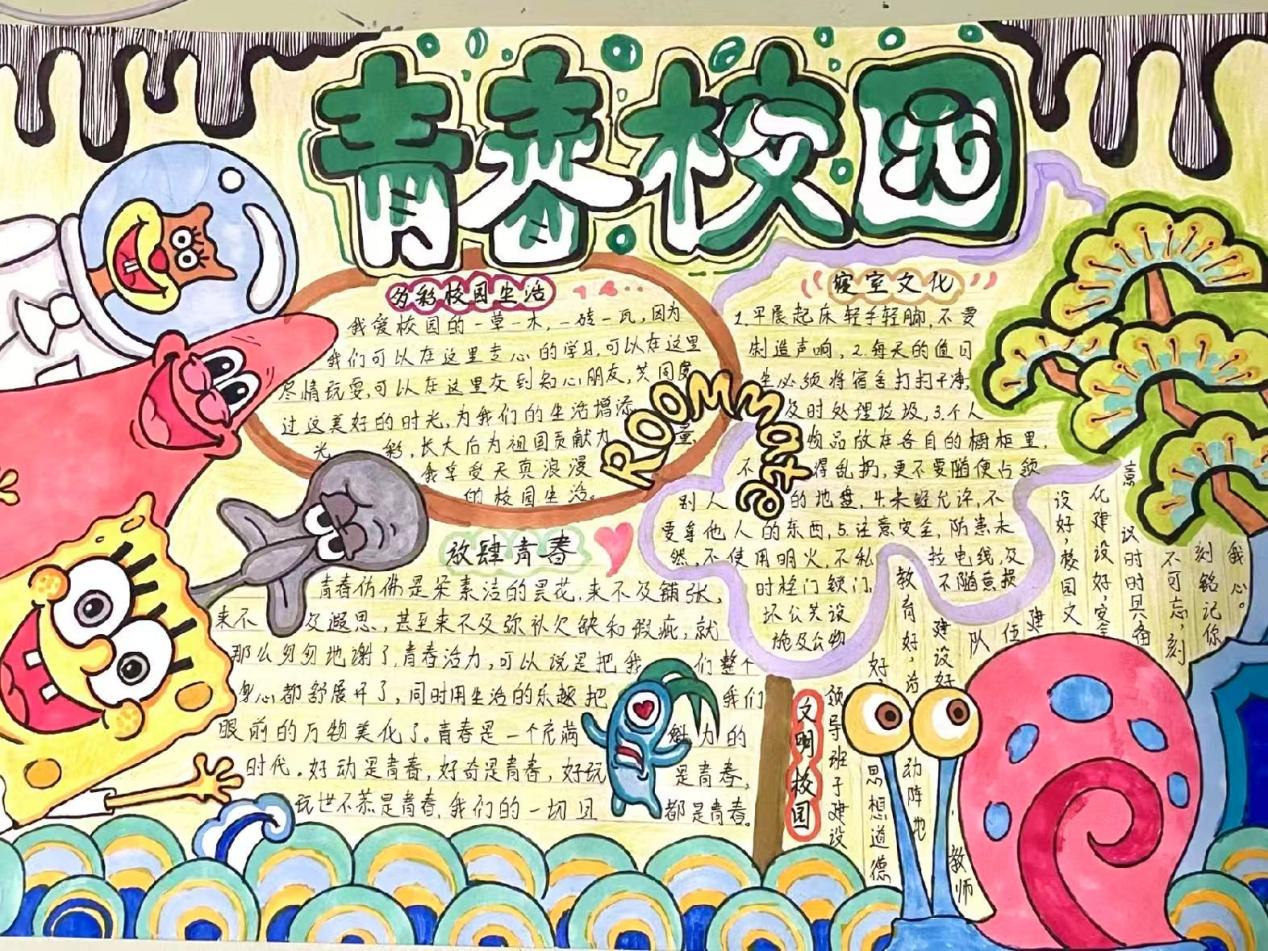 青春校园
多彩校园生活
我爱校园的一草一木,一砖一瓦,因为
我们可以在这里专心的学习,可以在这里
尽情玩耍,可以在这里交到知心朋友,共同度
过这美好的时光,为我们的生活增添
光彩,长大后为祖国贡献力量,
我享受天真浪漫
的校园生活。
ROOMMate
寝室文化
1.平晨起床轻手轻脚,不要
制造声响,2.每天的值日
生必须将宿舍打扫干净,
及时处理垃圾,3.个人
物品放在各自的橱柜里,
不得乱扔,更不要随便占领
别人的地盘,4.未经允许,不
要拿他人的东西,5.注意安全,防患未
然,不使用明火,不私拉电线,及
时栓门锁门,不随意损
坏公共设
施及公物
放肆青春
青春仿佛是朵素洁的昙花,来不及铺张,
来不及遐思,甚至来不及弥补欠缺和瑕疵,就
那么匆匆地谢了,青春活力,可以说是把我们整个
身心都舒展开了,同时用生活的乐趣把我们
眼前的万物美化了。青春是一个充满魅力的
时代。好动是青春,好奇是青春,好玩是青春,
玩世不恭是青春,我们的一切且都是青春。
文明校园
领导班子建设
好,思想道德
教育好,活动阵地
建设好,教师
队伍建
设好,校园文
化建设好,安全
意
议时时具备
不可忘,刻
刻铭记你
我心。